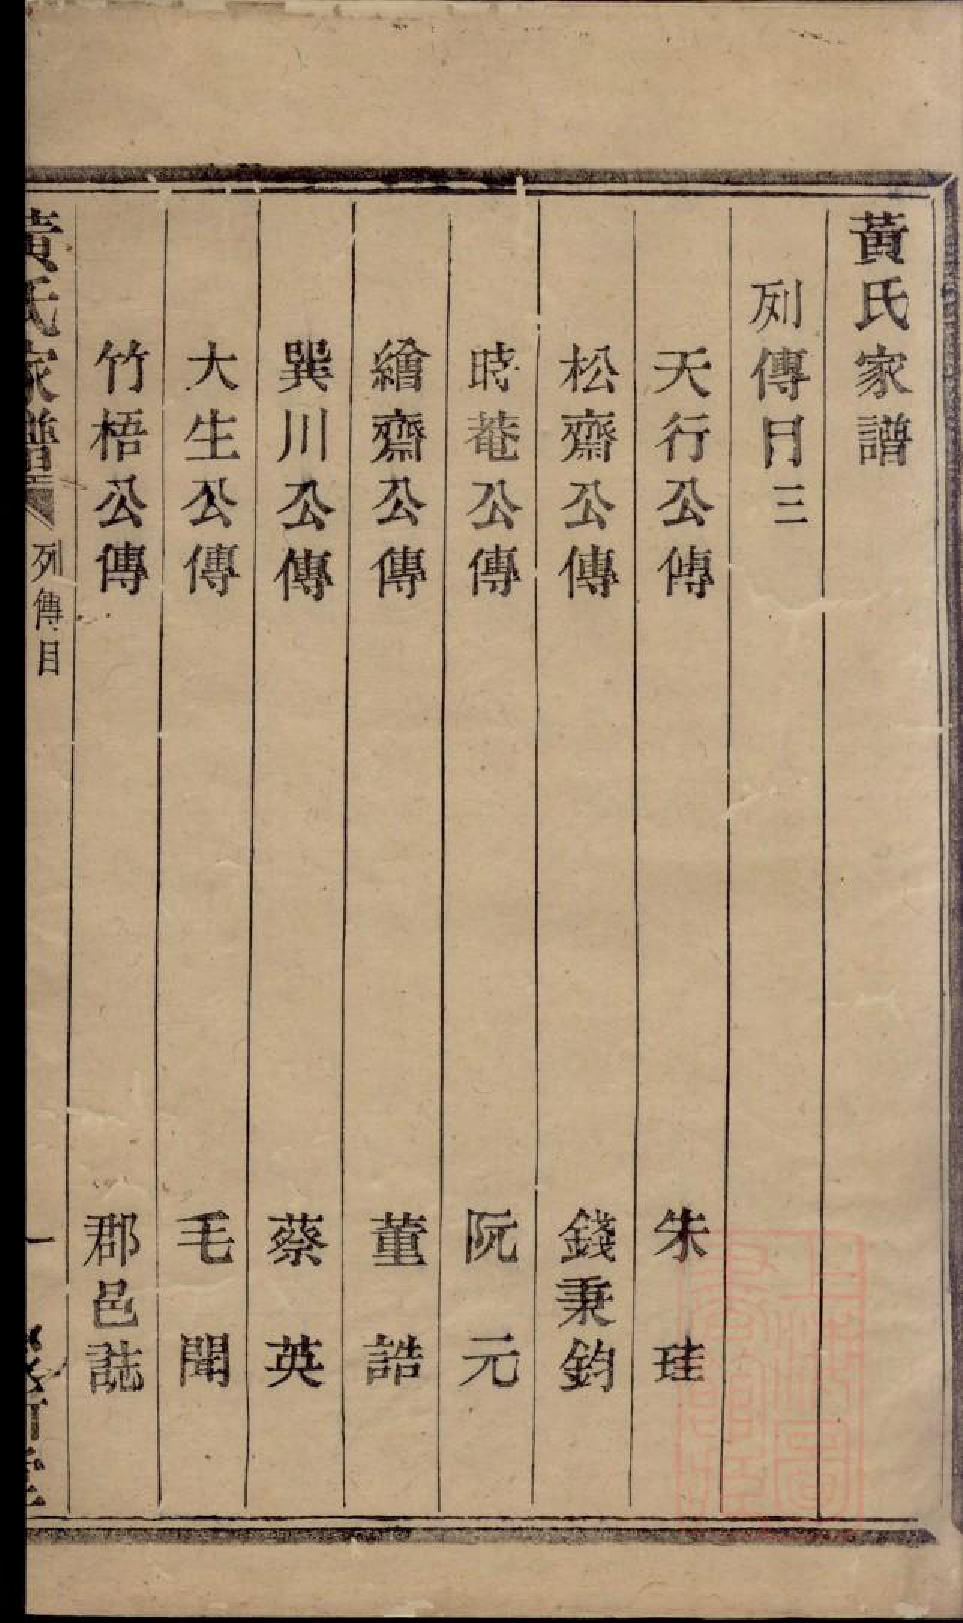 黃氏家譜
列傳目三
天行公傳 朱珪
松齋公傳 錢秉鈞
時菴公傳 阮元
繪齋公傳 董誥
巽川公傳 蔡英
大生公傳 毛聞
竹梧公傳 郡邑誌
黃氏家譜 列傳目 一